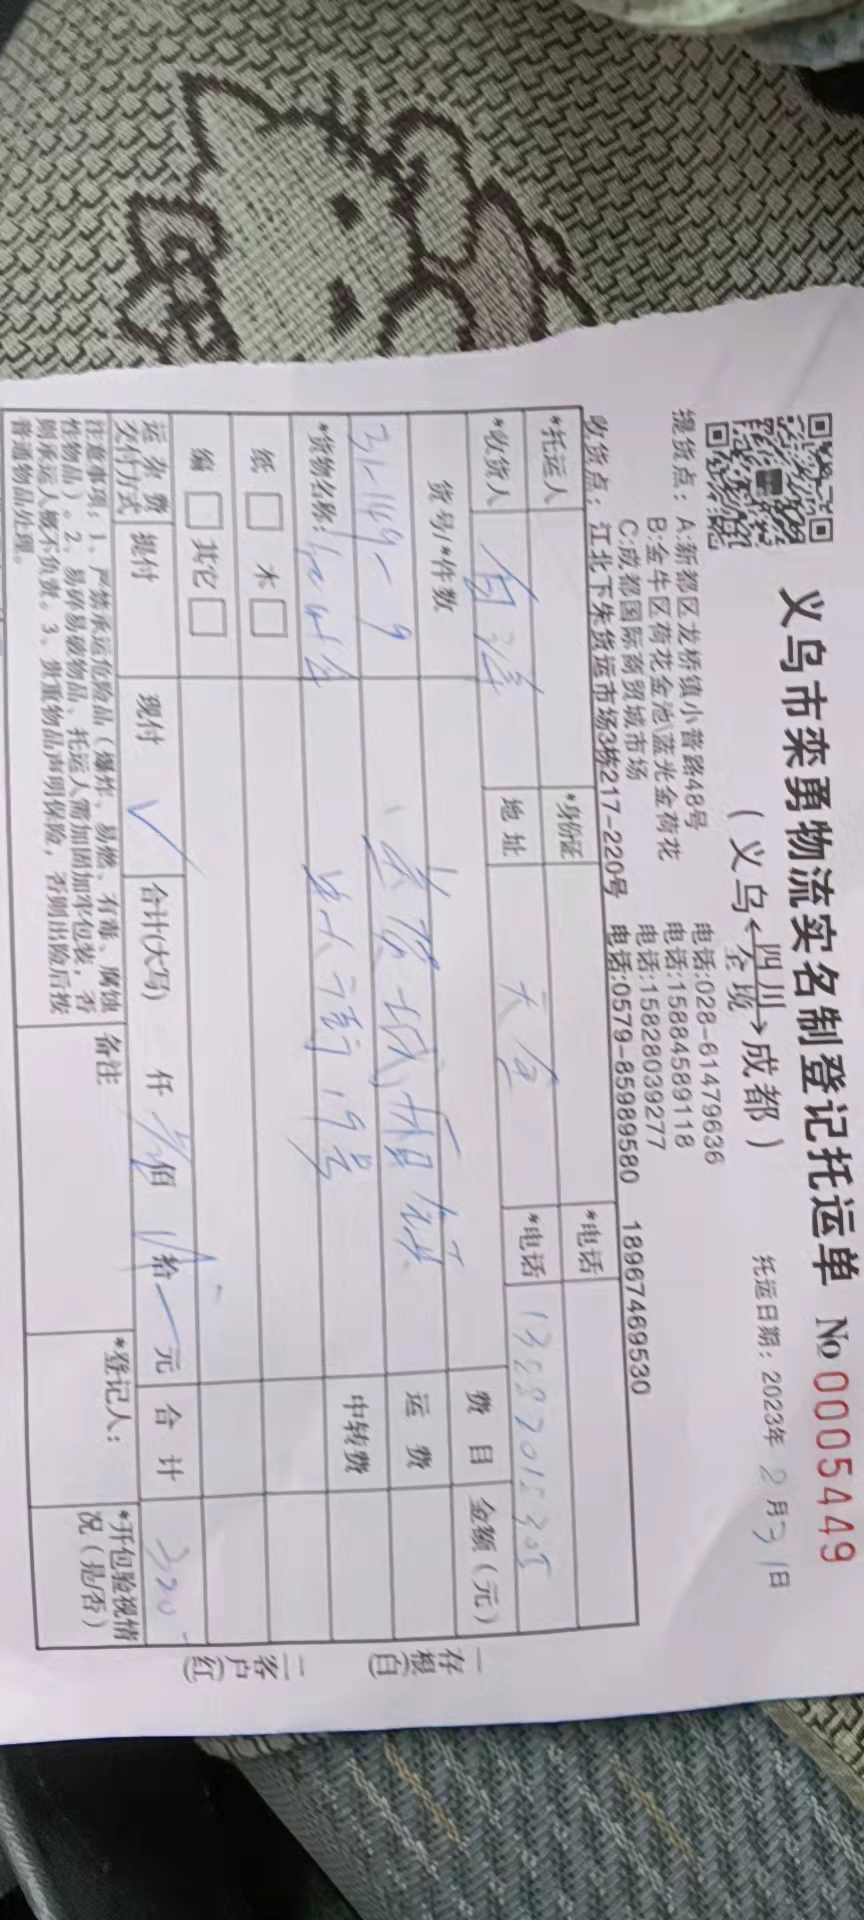 义乌市栾勇物流实名制登记托运单 No 0005449
（义乌←四川全境→成都）
托运日期：2023年8月31日
提货点：A:新都区龙桥镇小普路48号 电话:028-61479636
电话:15884589118
B:金牛区荷花金池\蓝光金荷花 电话:15828039277
C:成都国际商贸城市场
收货点：江北下朱货运市场3栋217-220号 电话:0579-85989580 18967469530
*托运人 *身份证 *电话
*收货人 地址 *电话
货号/*件数 费目 金额（元）
31-149-9 运费
*货物名称： 19号 中转费
纸 □ 木 □
编 □ 其它 □
运杂费交付方式 提付 现付 ✓ 合计(大写) 仟 佰 拾 元 合计
注意事项：1、严禁承运危险品（爆炸、易燃、有毒、腐蚀
性物品）。2、易碎易破物品，托运人需加固加牢包装，否
则承运人概不负责。3、贵重物品声明保险，否则出险后按
普通物品处理。
备注
*登记人：
*开包验视情况（是/否）
一存根(白)
二客户(红)